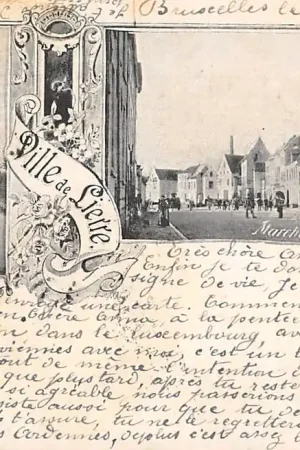 Bruxelles le
Ville de Lierre
March
Très chère An
Enfin je te do
signe de vie, Je
une carte. Comment
Chère Anna, à la pentec
dans le Luxembourg, av
viennes avec moi, c'est un b
out de même l'intention d
que plus tard, après tu reste
si agréable, nous passerions
siste aussi pour que tu de
t'assure, tu ne le regretter
s Ardennes, de plus c'est assez l